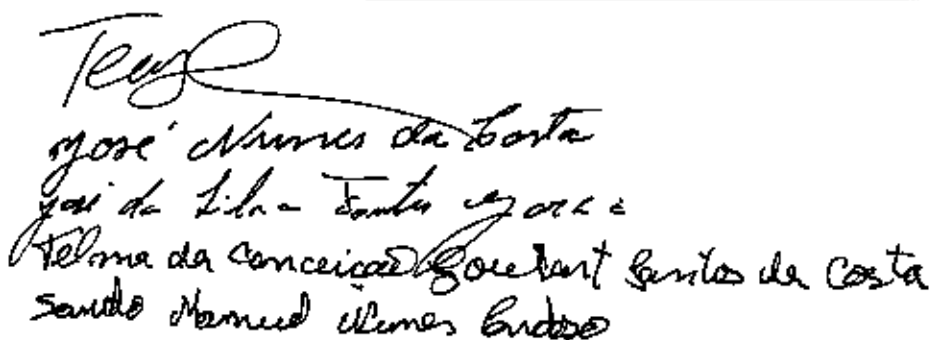 José Nunes da Costa
José da Silva
Telma da Conceição Goulart Santos da Costa
Sando Manuel Nunes Cardoso